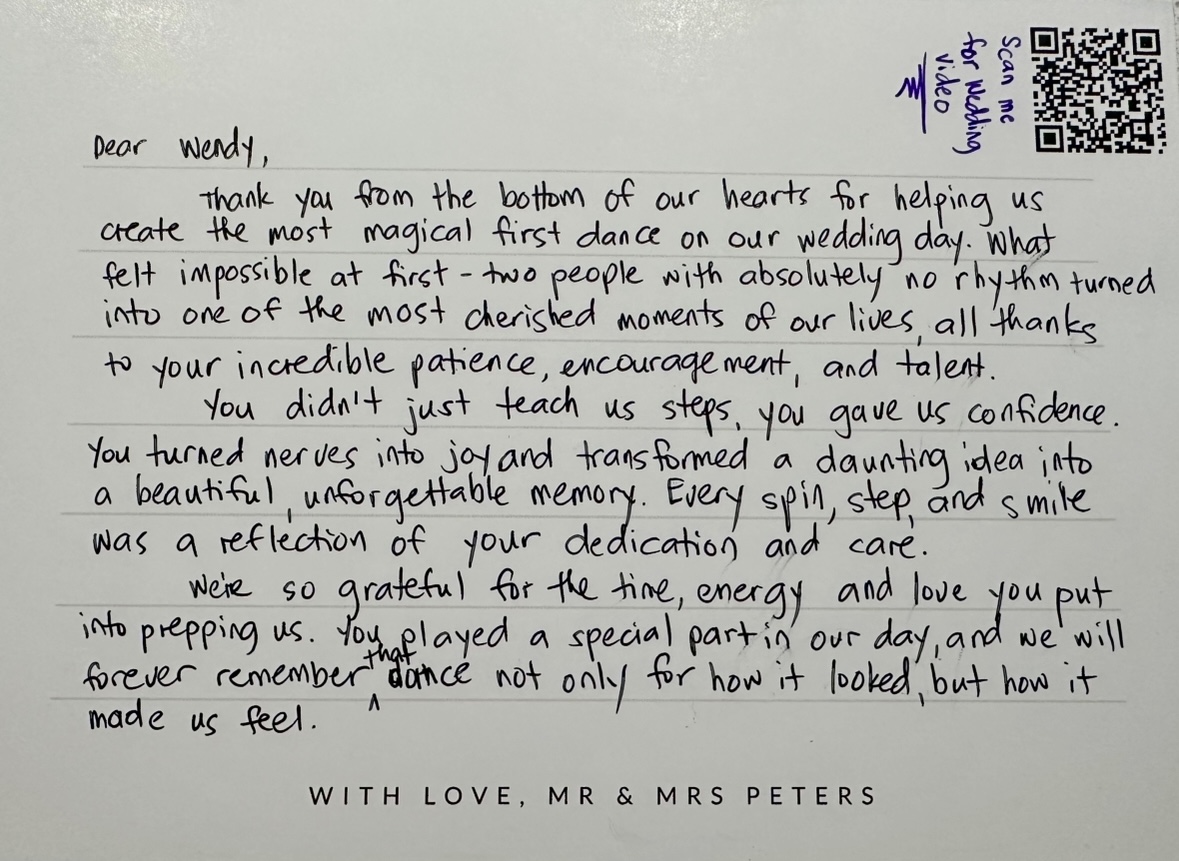 Scan me
for wedding
video
Dear Wendy,
Thank you from the bottom of our hearts for helping us
create the most magical first dance on our wedding day. What
felt impossible at first - two people with absolutely no rhythm turned
into one of the most cherished moments of our lives, all thanks
to your incredible patience, encouragement, and talent.
You didn't just teach us steps, you gave us confidence.
You turned nerves into joy and transformed a daunting idea into
a beautiful, unforgettable memory. Every spin, step, and smile
was a reflection of your dedication and care.
We're so grateful for the time, energy and love you put
into prepping us. You played a special part in our day, and we will
forever remember that dance not only for how it looked, but how it
made us feel.
WITH LOVE, MR & MRS PETERS